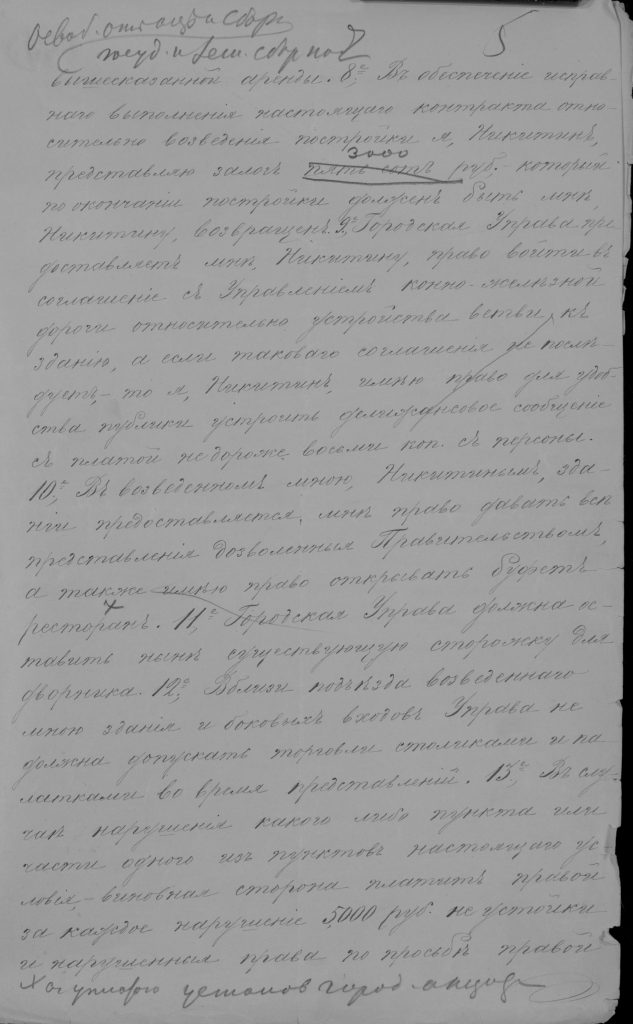 5
вышесказанной аренды. 8.е Въ обезпеченіе исправ-
наго выполненія настоящаго контракта отно-
сительно возведенія постройки я, Никитинъ,
3000
представляю залогъ пять сотъ руб. который
по окончаніи постройки долженъ быть мнѣ,
Никитину, возвращенъ. 9.е Городская Управа пре
доставляетъ мнѣ, Никитину, право войти въ
соглашеніе съ Управленіемъ конно-желѣзной
дороги относительно устройства вѣтви къ
зданію, а если таковаго соглашенія не послѣ-
дуетъ,- то я, Никитинъ, имѣю право для удоб-
ства публики устроить дилижансовое сообщеніе
съ платой не дороже восьми коп. съ персоны.
10.е Въ возведенномъ мною, Никитинымъ, зда-
ніи предоставляется мнѣ право давать всѣ
представленія дозволенныя Правительствомъ,
а также имѣю право открывать буфетъ
ресторанъ. 11.е Городская Управа должна ос-
тавить нынѣ существующую сторожку для
дворника. 12.е Вблизи подъѣзда возведеннаго
мною зданія и боковыхъ входовъ Управа не
должна допускать торговли столиками и па
латками во время представленій. 13.е Въ слу-
чаѣ нарушенія какого либо пункта или
части одного изъ пунктовъ настоящаго ус-
ловія,- виновная сторона платитъ правой
за каждое нарушеніе 5000 руб. не устойки
и нарушенныя права по просьбѣ правой
город.